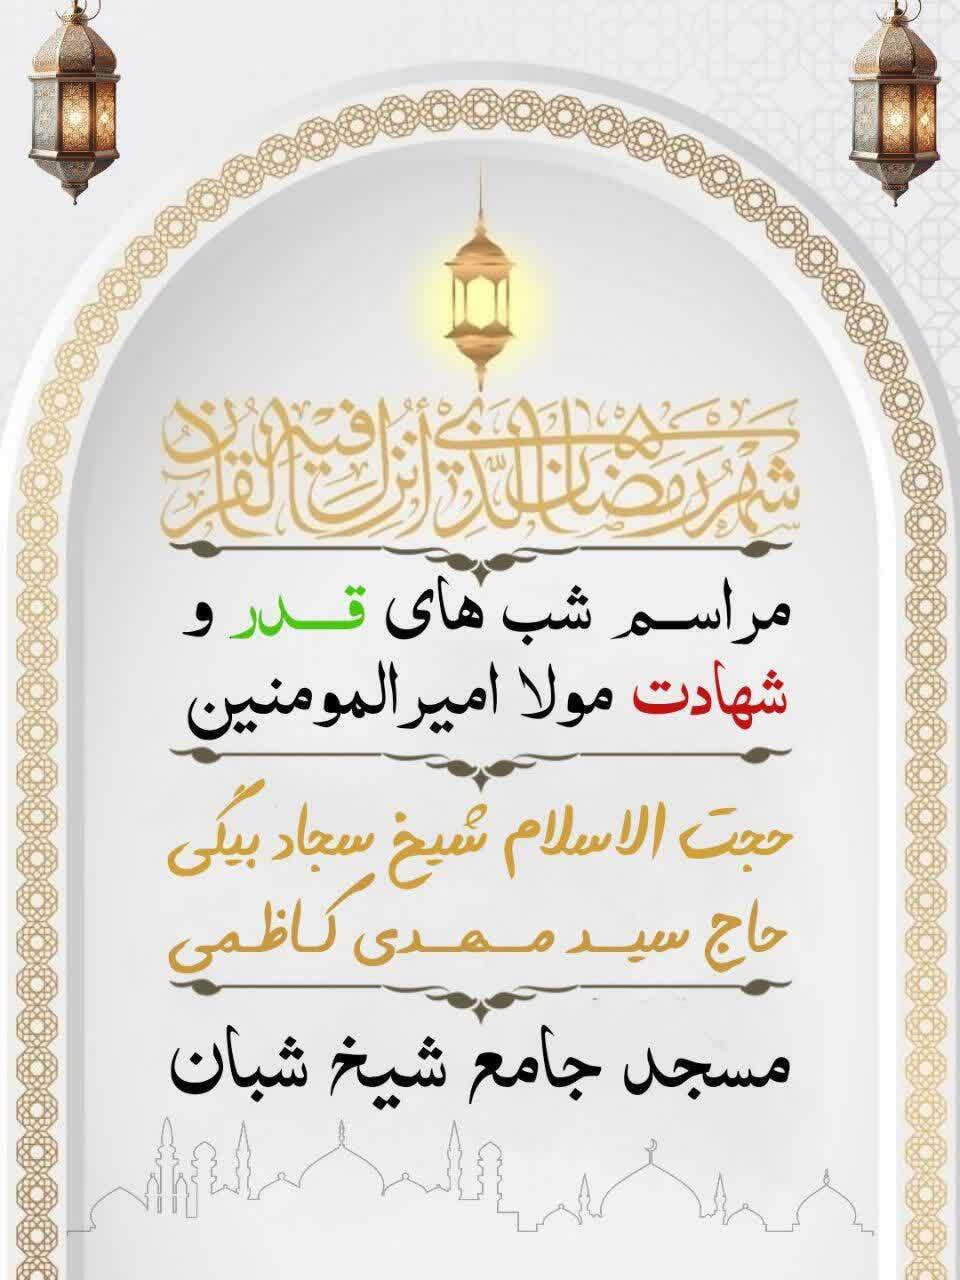 شهر رمضان الذي أنزل فيه القرآن
مراسم شب های قدر و
شهادت مولا امیرالمومنین
حجت الاسلام شیخ سجاد بیگی
حاج سید مهدی کاظمی
مسجد جامع شیخ شبان